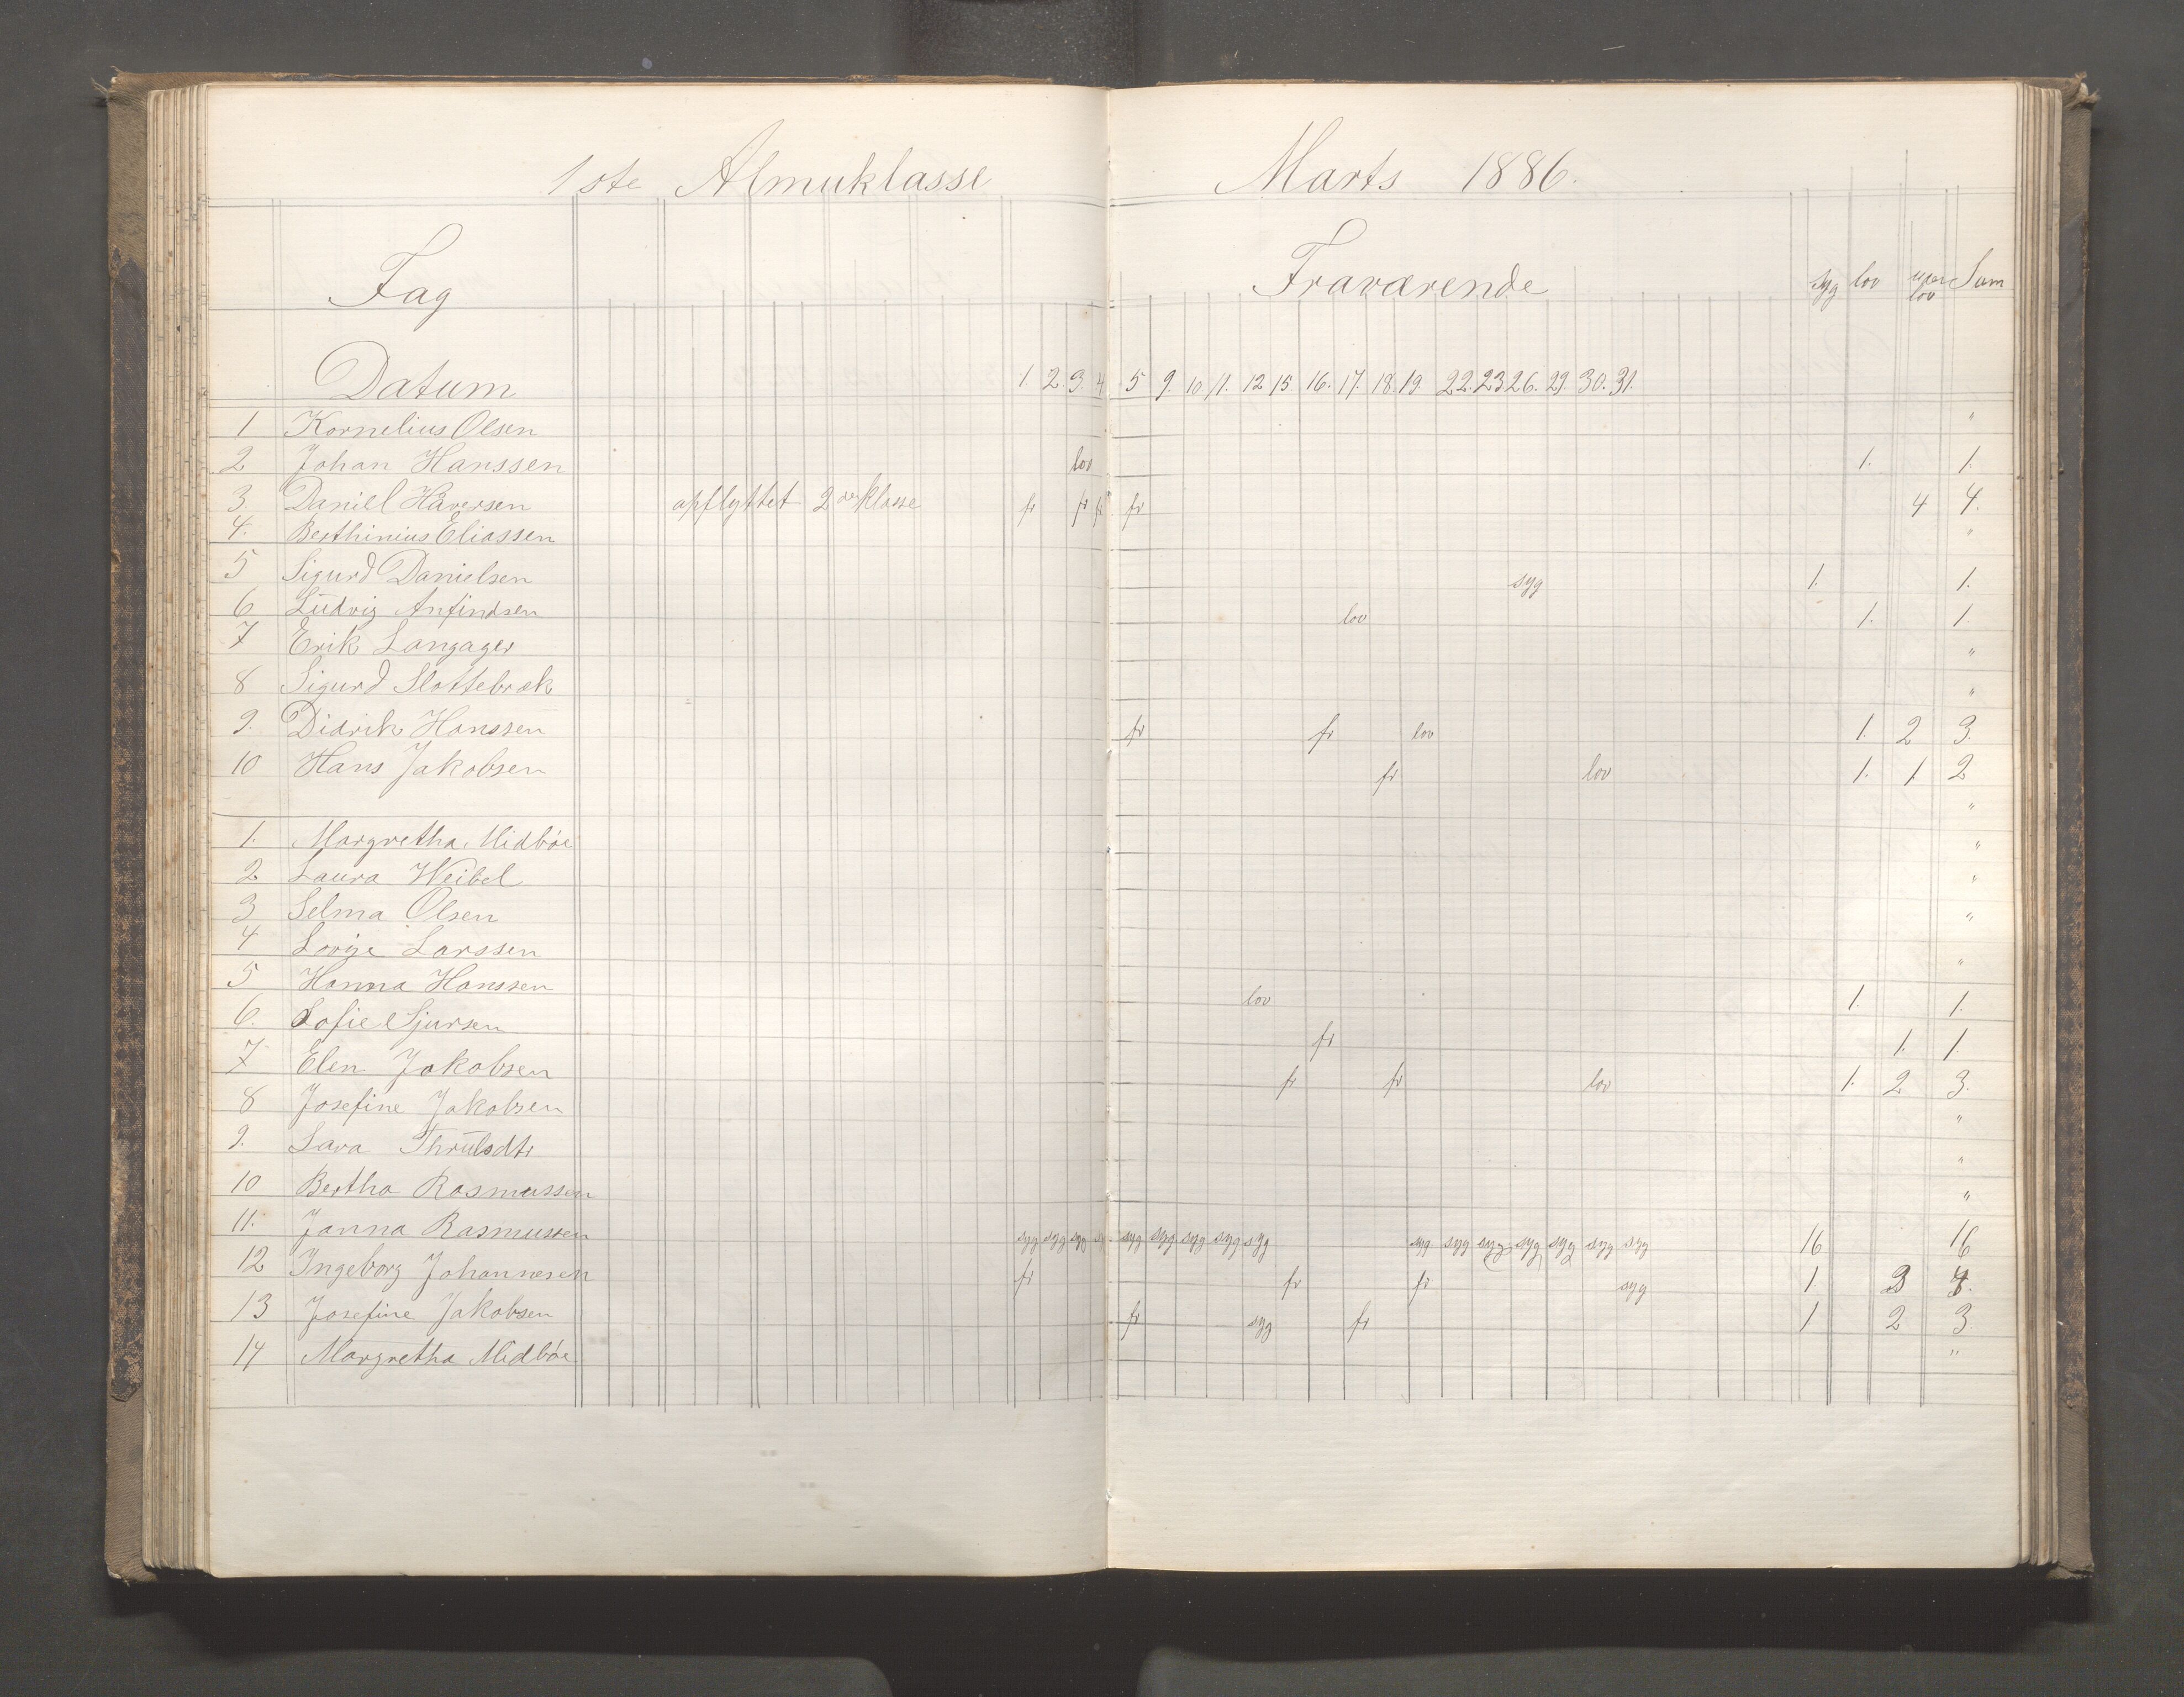 1ste Almuklasse Marts 1886.
Fag Fraværende syg lov uden lov Sum
Datum 1 2. 3. 4 5 9. 10 11. 12 15 16. 17. 18. 19. 22. 23 26. 29. 30. 31.
1 Kornelius Olsen "
2 Johan Hanssen lov 1. 1.
3 Daniel Håversen opflyttet 2den Klasse fr fr fr fr 4 4.
4. Berthinius Eliassen "
5 Sigurd Danielsen syg 1. 1.
6 Ludvig Anfindsen lov 1. 1.
7 Erik Langager "
8 Sigurd Slottebrek "
9. Didrik Hanssen fr fr lov 1. 2 3.
10 Hans Jakobsen fr lov 1. 1 2
"
1. Margretha Midbøe "
2 Laura Weibel "
3 Selma Olsen "
4 Lovise Larssen "
5 Hanna Hanssen lov 1. 1.
6. Sofie Sjursen fr 1. 1.
7 Elen Jakobsen fr fr lov 1. 2 3.
8 Josefine Jakobsen "
9. Sara Thrulsdtr "
10 Bertha Rasmussen "
11. Janna Rasmussen syg syg syg syg syg syg syg syg syg syg syg syg syg syg syg syg 16 16
12 Ingeborg Johannesen fr fr fr syg 1. 3 4.
13 Josefine Jakobsen fr syg fr 1 2 3.
14 Margretha Midbøe "